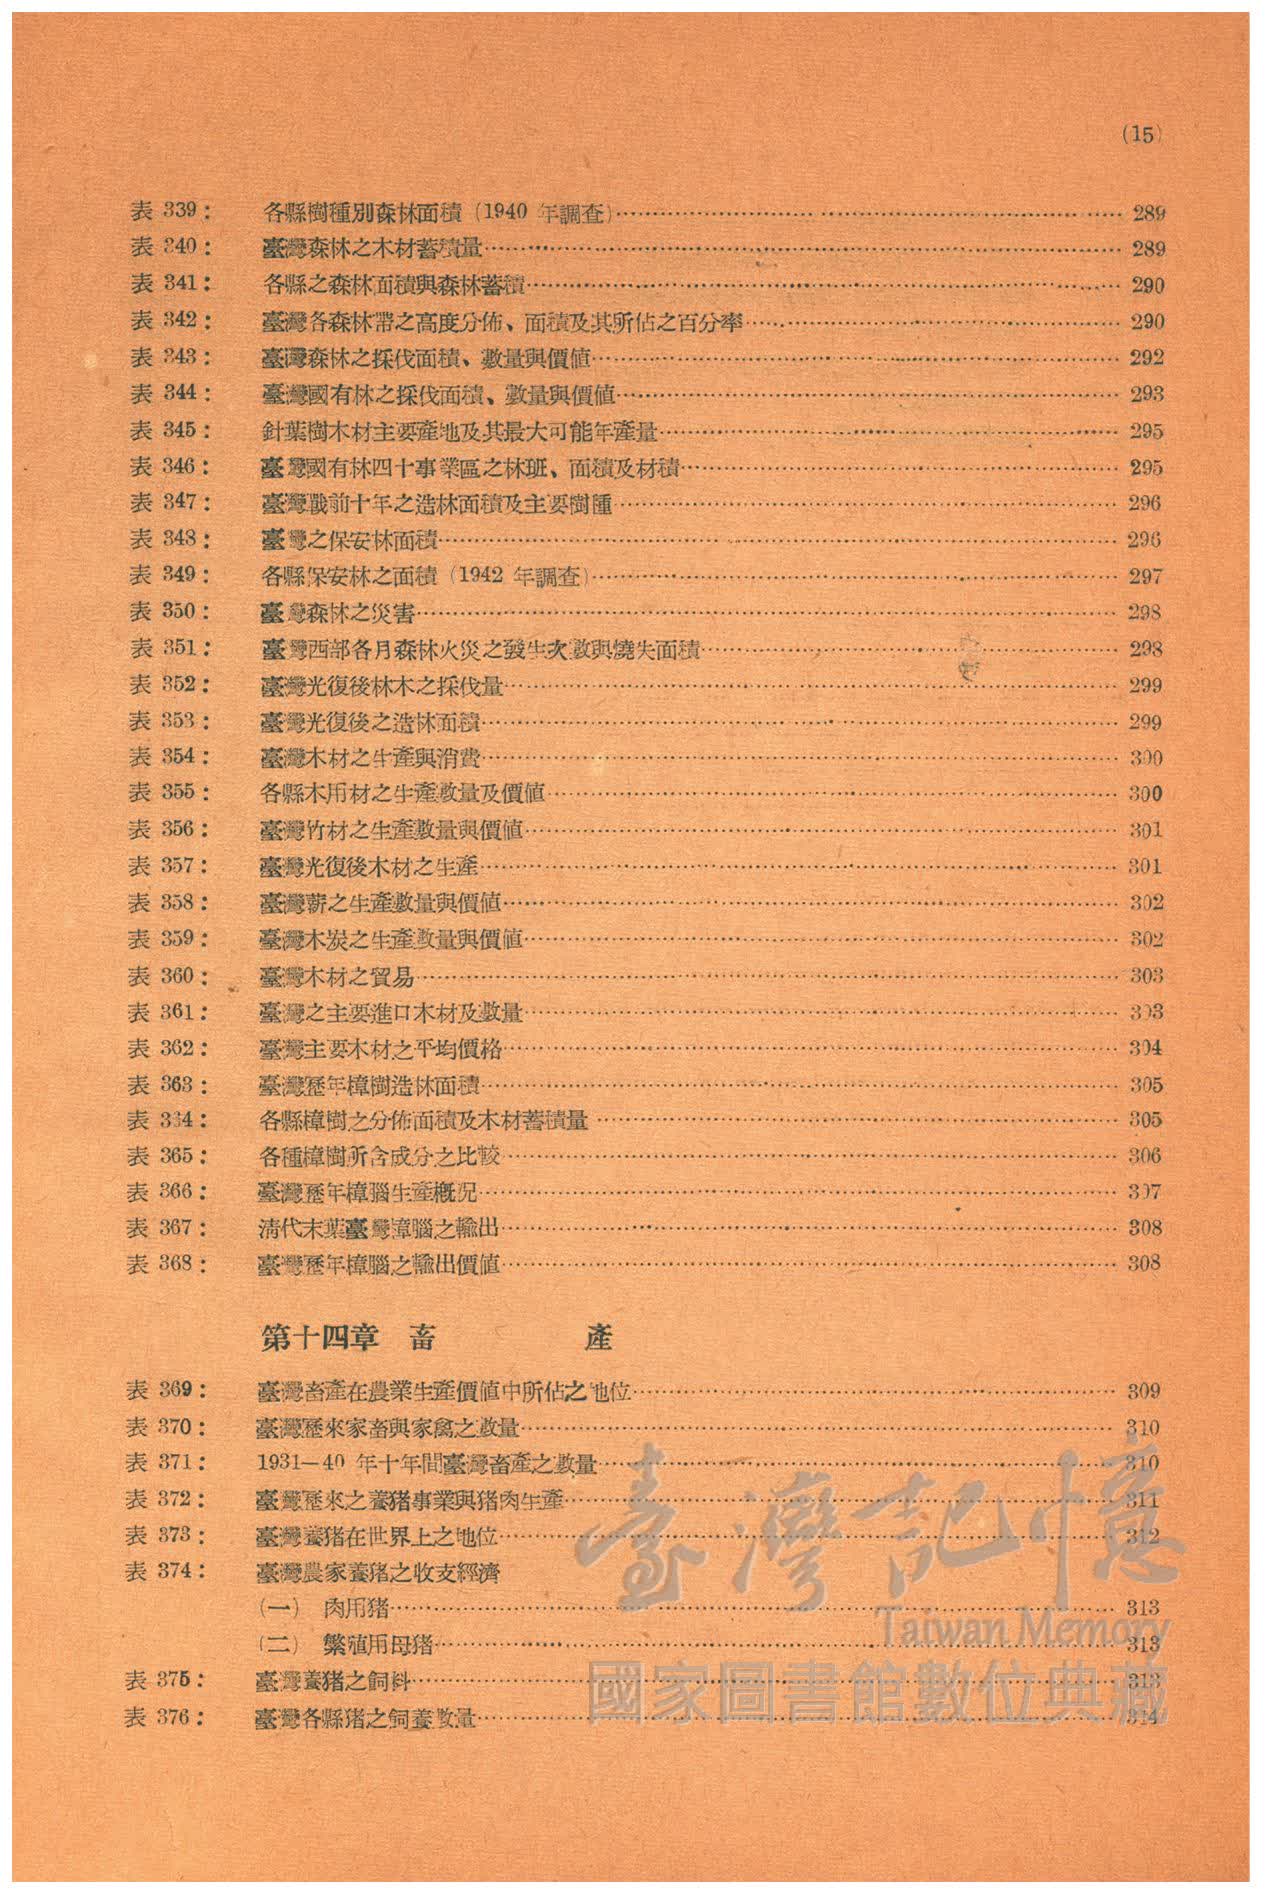 (15)
表 339： 各縣樹種別森林面積（1940 年調查）…… 289
表 340： 臺灣森林之木材蓄積量…… 289
表 341： 各縣之森林面積與森林蓄積…… 290
表 342： 臺灣各森林帶之高度分佈、面積及其所佔之百分率…… 290
表 343： 臺灣森林之採伐面積、數量與價値…… 292
表 344： 臺灣國有林之採伐面積、數量與價値…… 293
表 345： 針葉樹木材主要產地及其最大可能年產量…… 295
表 346： 臺灣國有林四十事業區之林班、面積及材積…… 295
表 347： 臺灣戰前十年之造林面積及主要樹種…… 296
表 348： 臺灣之保安林面積…… 296
表 349： 各縣保安林之面積（1942 年調查）…… 297
表 350： 臺灣森林之災害…… 298
表 351： 臺灣西部各月森林火災之發生次數與燒失面積…… 298
表 352： 臺灣光復後林木之採伐量…… 299
表 353： 臺灣光復後之造林面積…… 299
表 354： 臺灣木材之生產與消費…… 300
表 355： 各縣木用材之生產數量及價値…… 300
表 356： 臺灣竹材之生產數量與價値…… 301
表 357： 臺灣光復後木材之生產…… 301
表 358： 臺灣薪之生產數量與價値…… 302
表 359： 臺灣木炭之生產數量與價値…… 302
表 360： 臺灣木材之貿易…… 303
表 361： 臺灣之主要進口木材及數量…… 303
表 362： 臺灣主要木材之平均價格…… 304
表 363： 臺灣歷年樟樹造林面積…… 305
表 364： 各縣樟樹之分佈面積及木材蓄積量…… 305
表 365： 各種樟樹所含成分之比較…… 306
表 366： 臺灣歷年樟腦生產概況…… 307
表 367： 淸代末葉臺灣樟腦之輸出…… 308
表 368： 臺灣歷年樟腦之輸出價値…… 308
第十四章 畜 產
表 369： 臺灣畜產在農業生產價値中所佔之地位…… 309
表 370： 臺灣歷來家畜與家禽之數量…… 310
表 371： 1931—40 年十年間臺灣畜產之數量…… 310
表 372： 臺灣歷來之養猪事業與猪肉生產…… 311
表 373： 臺灣養猪在世界上之地位…… 312
表 374： 臺灣農家養猪之收支經濟
（一） 肉用猪…… 313
（二） 繁殖用母猪…… 313
表 375： 臺灣養猪之飼料…… 313
表 376： 臺灣各縣猪之飼養數量…… 314
臺灣記憶
Taiwan Memory
國家圖書館數位典藏